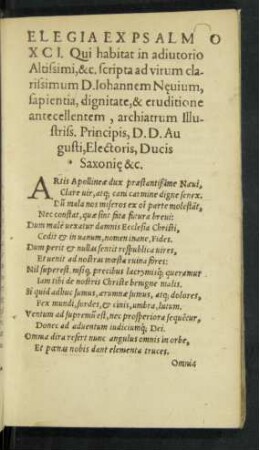 ELEGIA EX PSALMO
XCI. Qui habitat in adiutorio
Altissimi, &c. scripta ad virum cla-
rissimum D. Iohannem Neuium,
sapientia, dignitate, & eruditione
antecellentem, archiatrum Illu-
striss. Principis, D. D. Au
gusti, Electoris, Ducis
Saxonię &c.
ARtis Apollineæ dux præstantissime Næui,
Clare uir, atq; cani carmine digne senex.
Dũ mala nos miseros ex oĩ parte molestãt,
Nec constat, quæ sint fata futura breui:
Dum malè uexatur damnis Ecclesia Christi,
Cedit & in uanum, nomen inane, Fides.
Dum perit & nullas sentit respublica uires,
Et uenit ad nostras mœsta ruina fires:
Nil superest. nisi q; precibus lacrymisq; queramur
Iam tibi de nostris Christe benigne malis.
Si quid adhuc sumus, ærumnæ sumus, atq; dolores,
Fex mundi, sordes, & cinis, umbra, lutum.
Ventum ad supremũ est, nec prosperiora sequẽtur,
Donec ad aduentum iudiciumq; Dei.
Omnia dira refert nunc angulus omnis in orbe,
Et pœnas nobis dant elementa truces.
Omnia